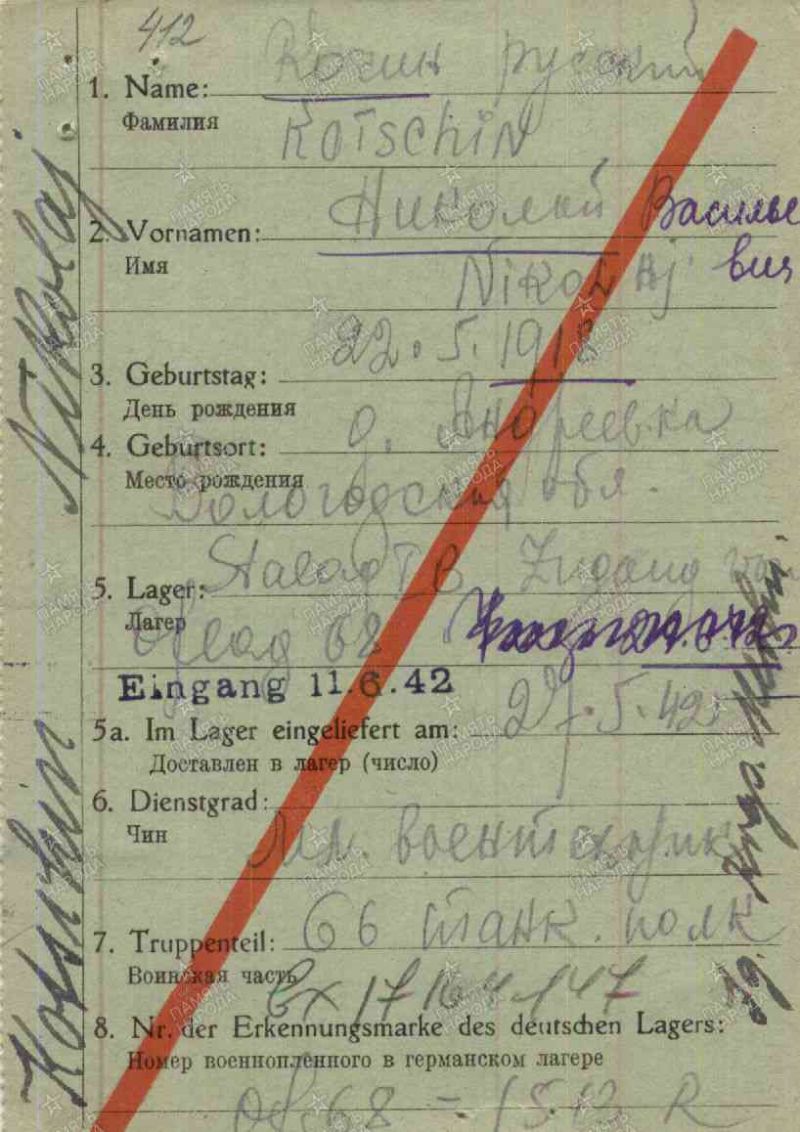 412
Кочин русский
1. Name:
Фамилия
Kotschin
Николай Василье
2. Vornamen: вич
Имя
Nikolaj
22. 5. 1918
3. Geburtstag:
День рождения
д. Андреевка
4. Geburtsort:
Место рождения
Вологодская обл.
Stalag I B Zugang von
5. Lager:
Лагер
Oflag 68
Eingang 11.6.42
27. 5. 42.
5a. Im Lager eingeliefert am:
Доставлен в лагер (число)
6. Dienstgrad:
Чин
Мл. воентехник
66 танк. полк
7. Truppenteil:
Воинская часть
8. Nr. der Erkennungsmarke des deutschen Lagers:
Номер военнопленного в германском лагере
Of. 68 = 1513 R
Kotschin Nikolaj